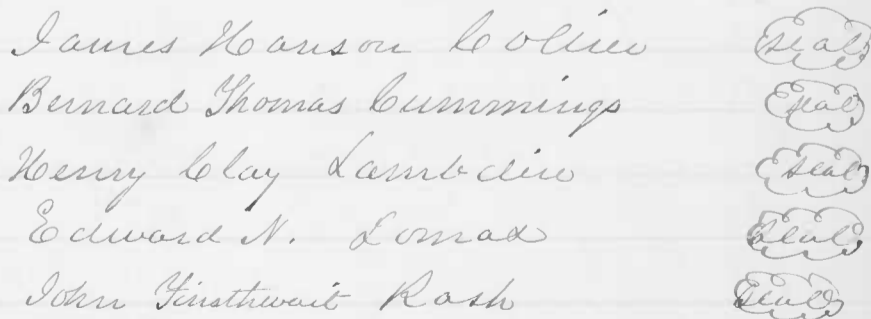 James Hanson Collier (seal)
Bernard Thomas Cummings (seal)
Henry Clay Lambdin (seal)
Edward N. Lomax (seal)
John Finsthwait Rash (seal)